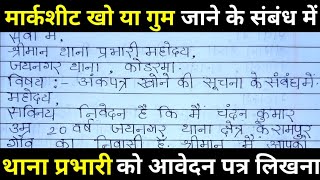 मार्कशीट खो या गुम जाने के संबंध में
सेवा में,
श्रीमान थाना प्रभारी महोदय,
जयनगर थाना, कोडरमा.
विषय:- अंकपत्र खोने की सूचना के संबंध में.
महोदय,
सविनय निवेदन है कि मैं चंदन कुमार
उम्र 20 वर्ष जयनगर थाना क्षेत्र के रामपुर
गाँव का निवासी हूँ. श्रीमान मैं आपका
थाना प्रभारी को आवेदन पत्र लिखना